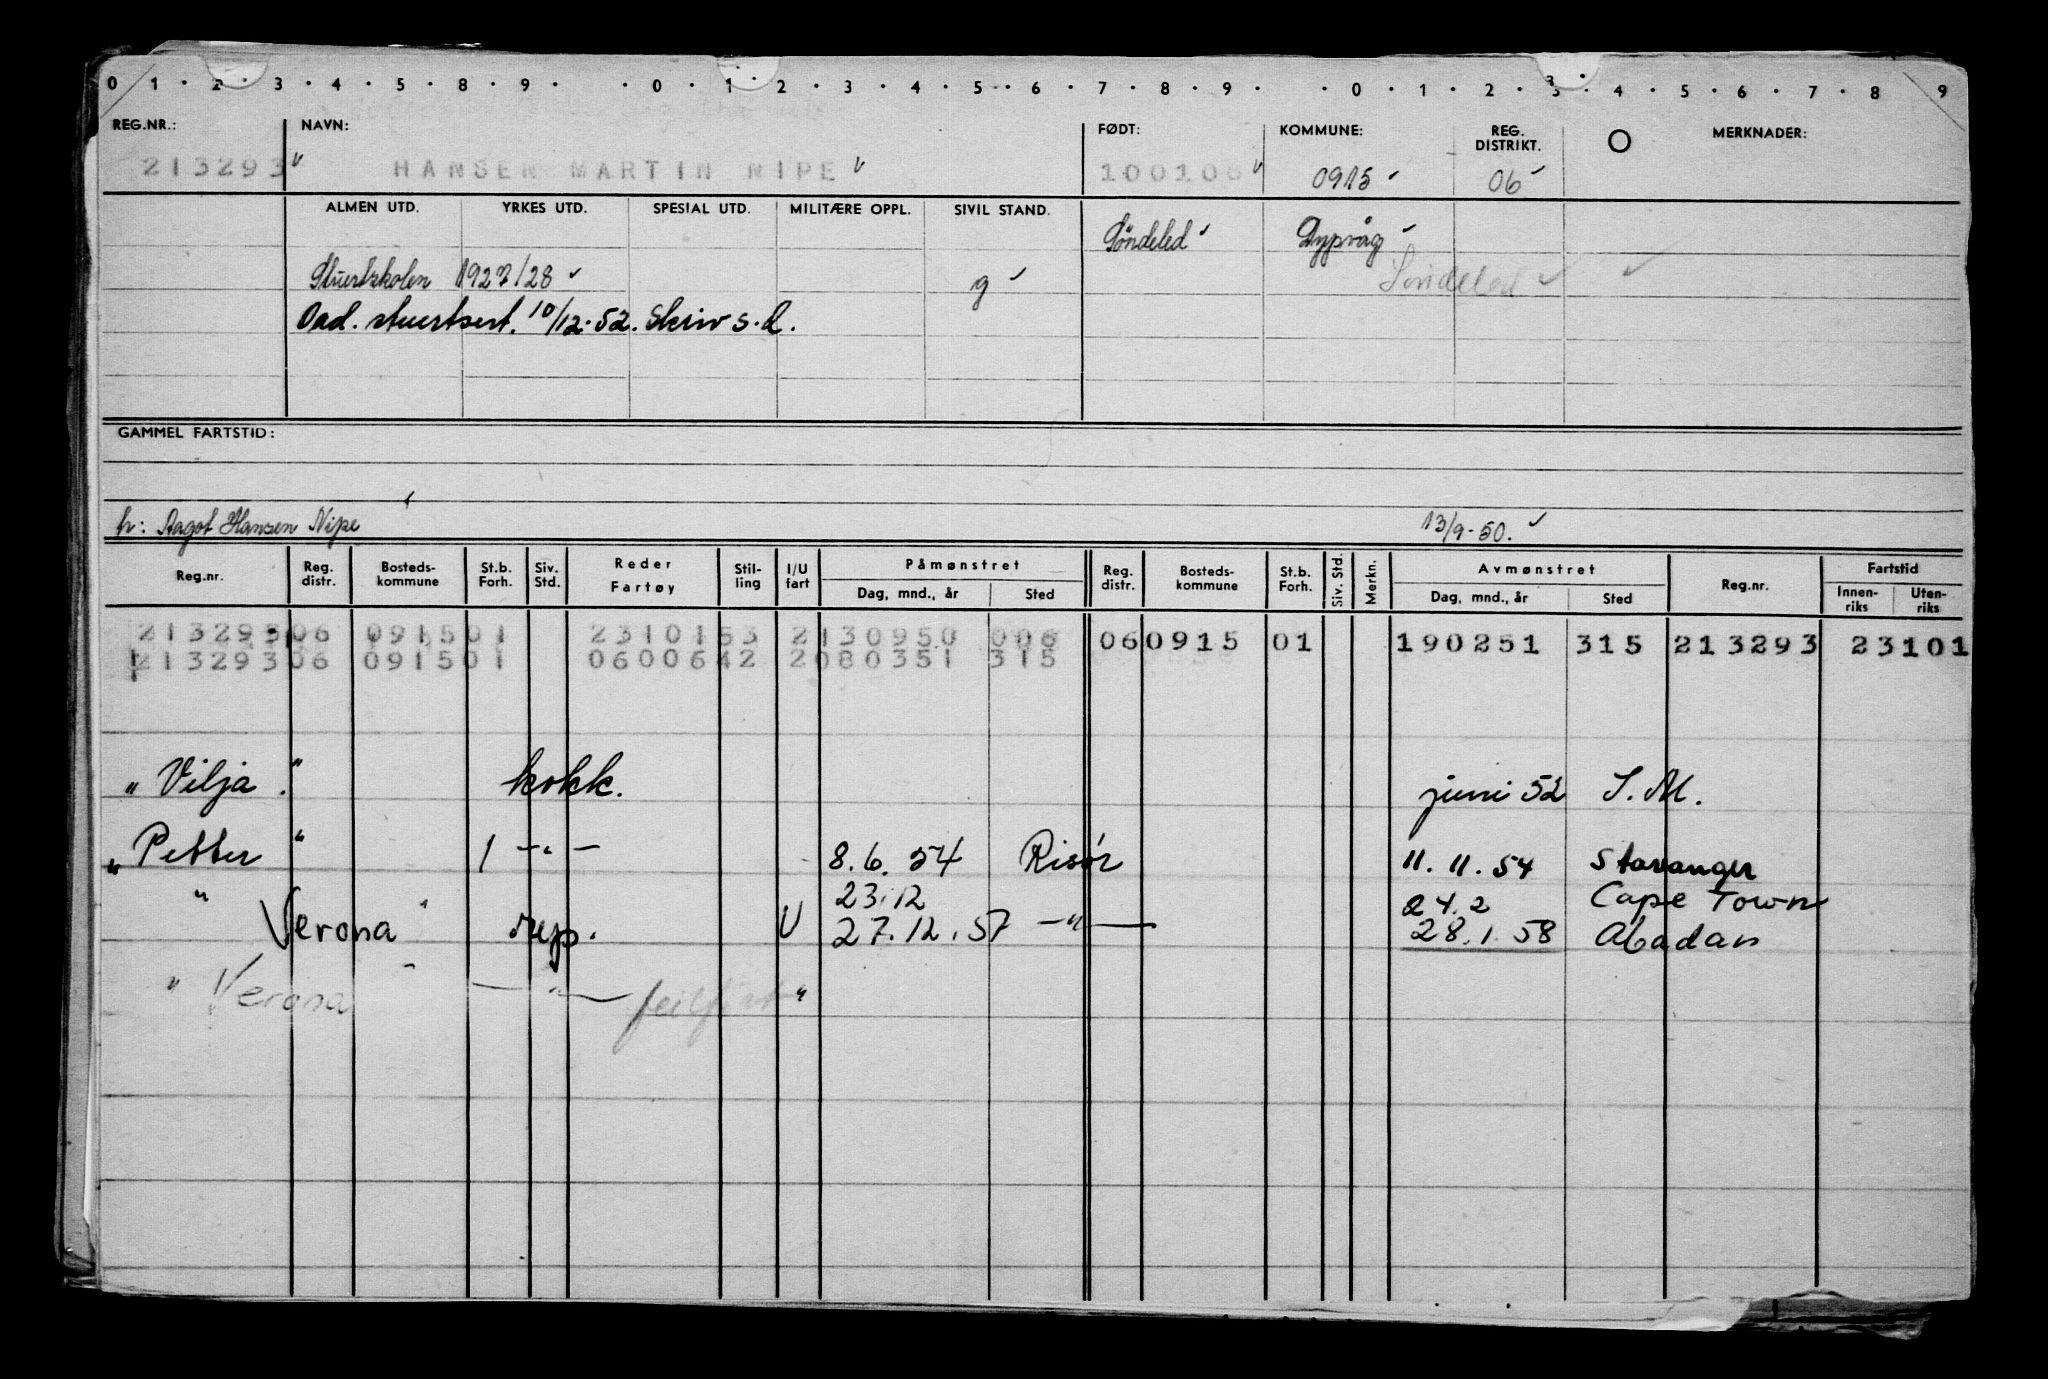 0 1 2 3 4 5 8 9 0 1 2 3 4 5 6 7 8 9 0 1 2 3 4 5 6 7 8 9
REG.NR.: NAVN: FØDT: KOMMUNE: REG. DISTRIKT. MERKNADER:
213293 HANSEN MARTIN NIPE 100106 0915 06
ALMEN UTD. YRKES UTD. SPESIAL UTD. MILITÆRE OPPL. SIVIL STAND.
Söndeled Dypvåg
Stuertskolen 1927/28 g Söndeled
Oad. stuertsert. 10/12.52. Skriv s.d.
GAMMEL FARTSTID:
h: Aagot Hansen Nipe 13/9-50.
Reg.nr. Reg. distr. Bosteds- kommune St.b. Forh. Siv. Std. Reder Fartøy Stil- ling I/U fart Påmønstret Dag, mnd., år Sted Reg. distr. Bosteds- kommune St.b. Forh. Siv. Std. Merkn. Avmønstret Dag, mnd., år Sted Reg.nr. Fartstid Innen- riks Uten- riks
213293 06 0915 01 2310153 2 130950 006 06 0915 01 190251 315 213293 23101
213293 06 0915 01 0600642 2 080351 315
"Vilja." kokk. juni 52 S.M.
"Petter" 1 -"- 8.6.54 Risør 11.11.54 Stavanger
" 23.12 24.2 Cape Town
Verona " rep. U 27.12.57 -"- 28.1.58 Abadan
" Verona " -"- feilført "